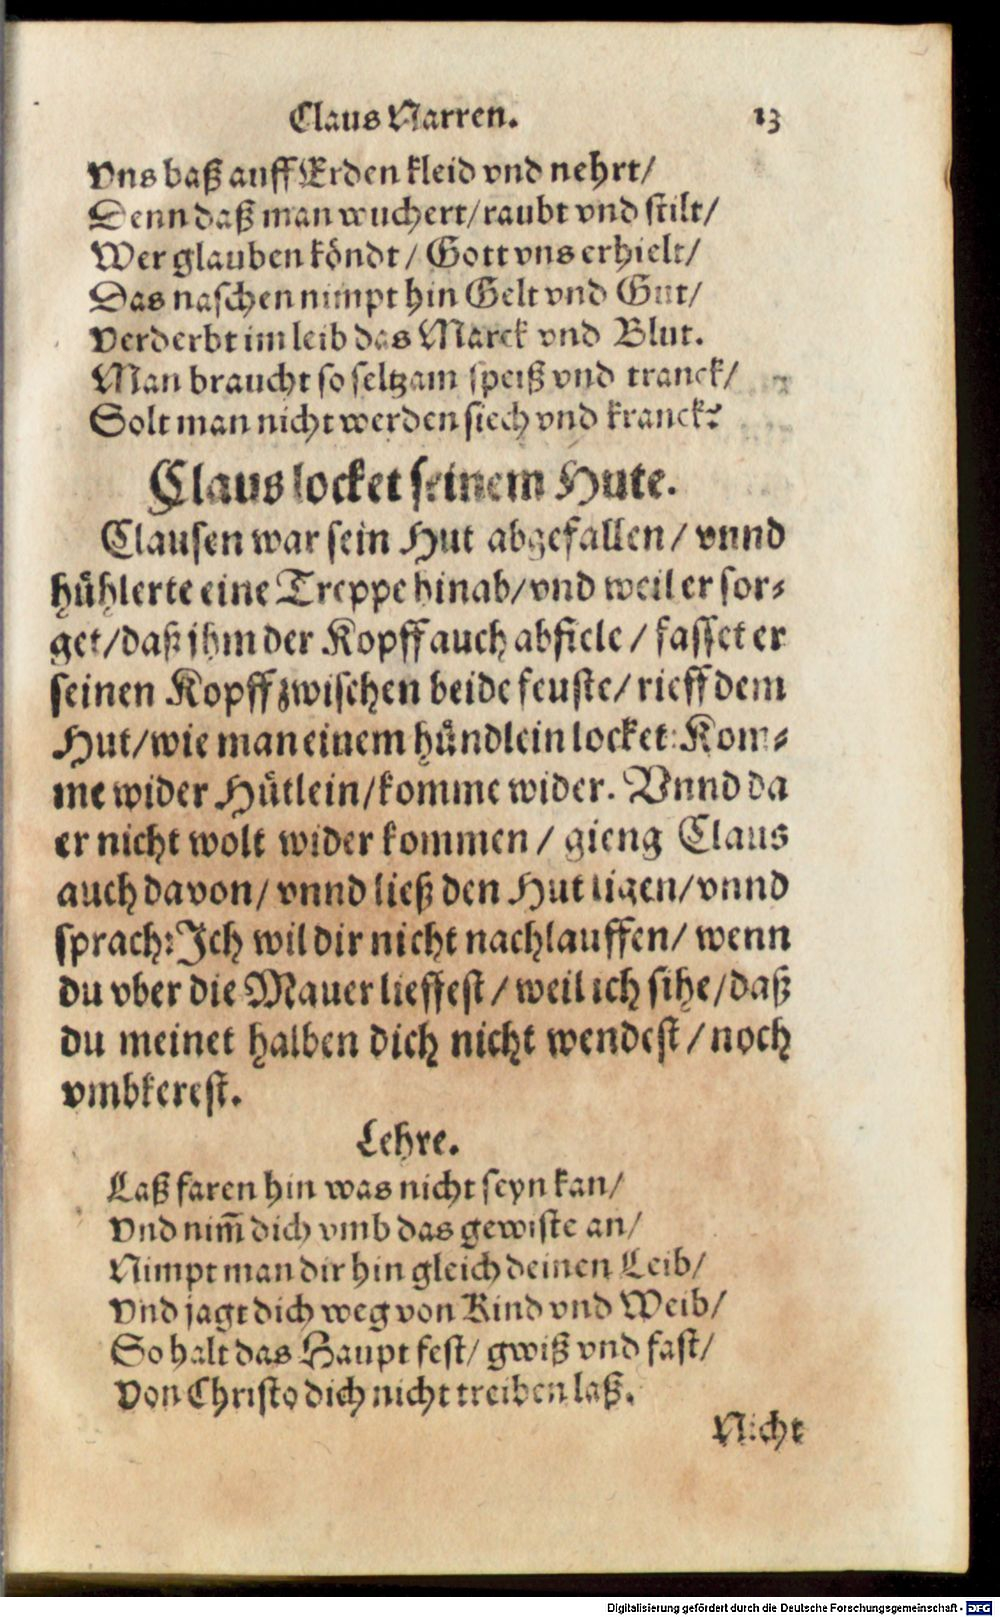 Claus Narren. 13
Vns baß auff Erden kleid vnd nehrt/
Denn daß man wuchert/raubt vnd stilt/
Wer glauben köndt/ Gott vns erhielt/
Das naschen nimpt hin Gelt vnd Gut/
Verderbt im leib das Marck vnd Blut.
Man braucht so seltzam speiß vnd tranck/
Solt man nicht werden siech vnd kranck?
Claus locket seinem Hute.
Clausen war sein Hut abgefallen/ vnnd
hühlerte eine Treppe hinab/vnd weil er sor-
get/daß ihm der Kopff auch abfiele/ fasset er
seinen Kopff zwischen beide feuste/ rieff dem
Hut/wie man einem hündlein locket: Kom-
me wider Hütlein/komme wider. Vnnd da
er nicht wolt wider kommen/ gieng Claus
auch davon/ vnnd ließ den Hut ligen/vnnd
sprach: Ich wil dir nicht nachlauffen/ wenn
du vber die Mauer lieffest/ weil ich sihe/daß
du meinet halben dich nicht wendest/ noch
vmbkerest.
Lehre.
Laß faren hin was nicht seyn kan/
Vnd nim̃ dich vmb das gewiste an/
Nimpt man dir hin gleich deinen Leib/
Vnd jagt dich weg von Kind vnd Weib/
So halt das Haupt fest/ gwiß vnd fast/
Von Christo dich nicht treiben laß.
Nicht
Digitalisierung gefördert durch die Deutsche Forschungsgemeinschaft - DFG